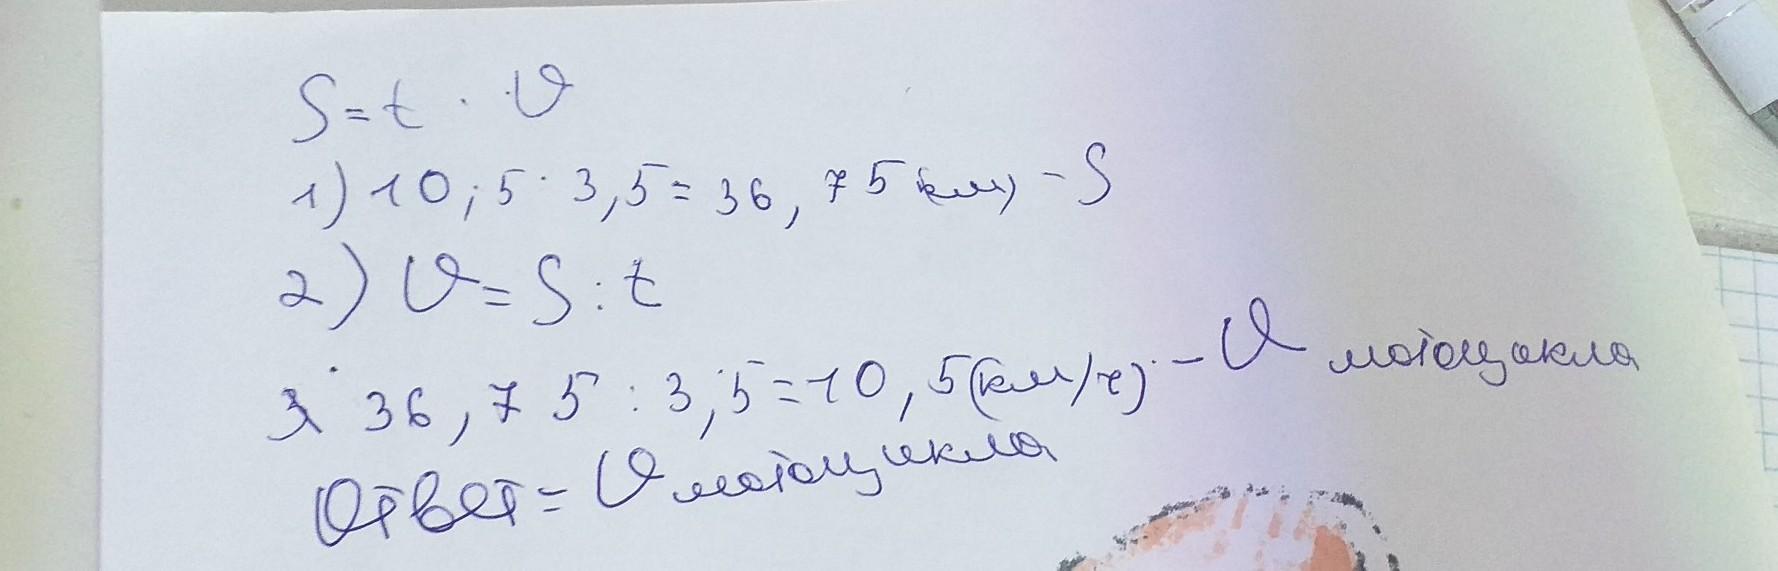 S=t · υ
1) 10,5 · 3,5 = 36,75 (км) - S
2) υ = S : t
3. 36,75 : 3,5 = 10,5 (км/ч) - υ мотоцикла
Ответ = υ мотоцикла